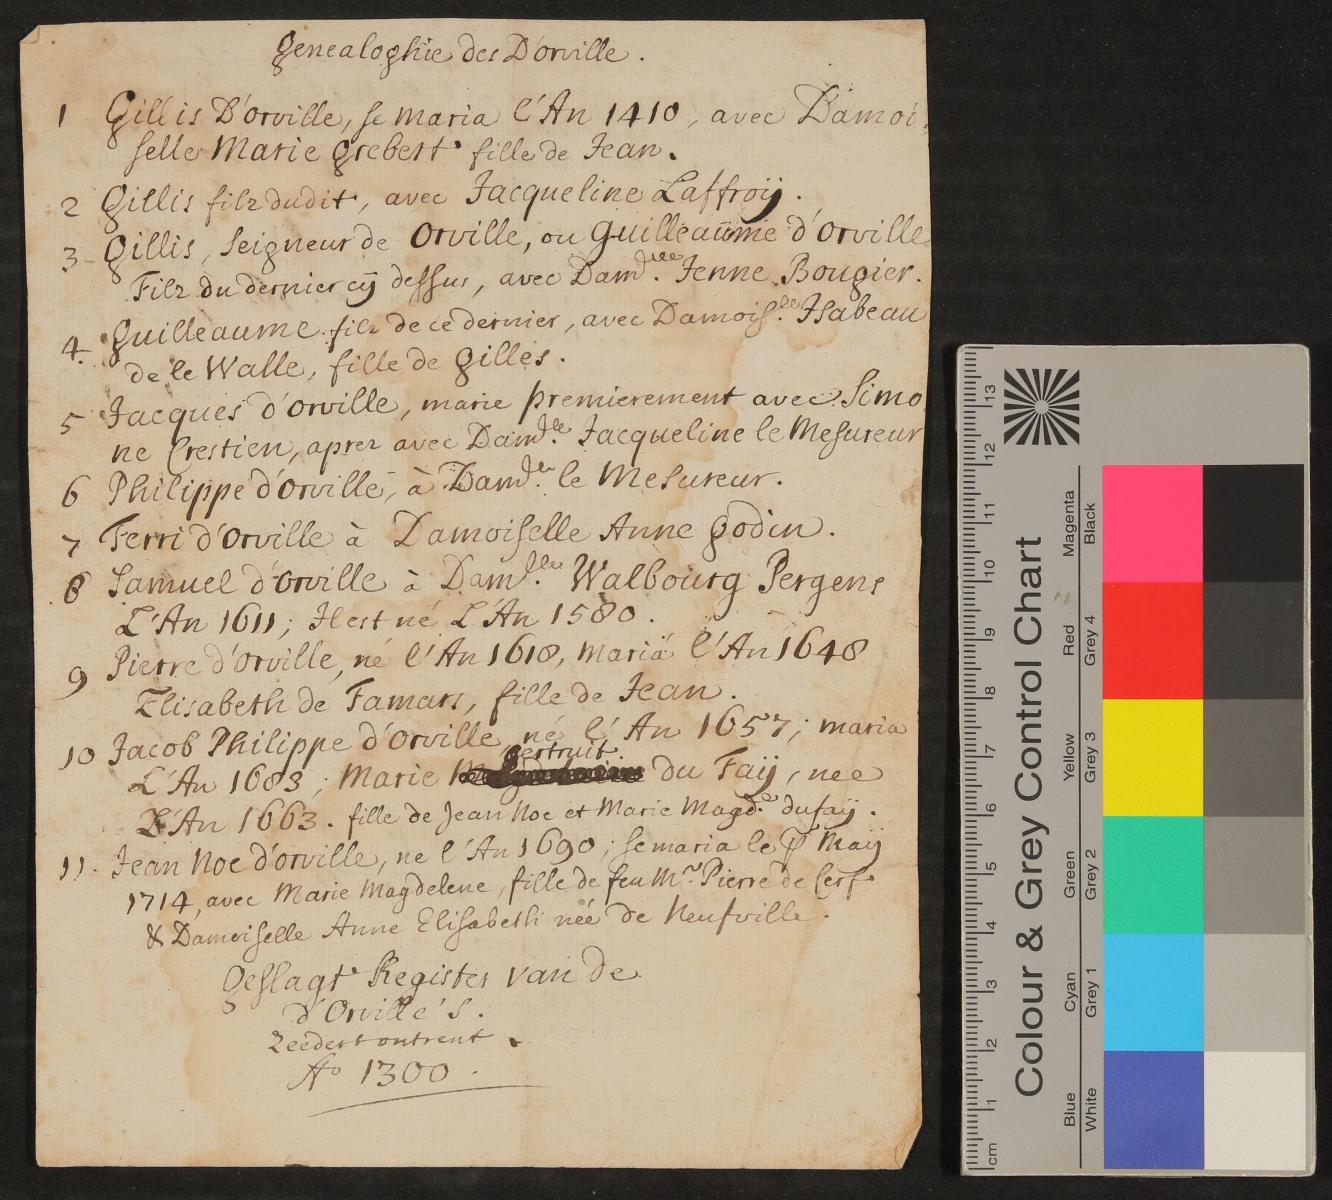 Genealoghie des D'orville.
1 Gillis D'orville, se maria l'An 1410, avec Damoi
selle Marie Grebert fille de Jean.
2 Gillis filz dudit, avec Jacqueline Laffroÿ.
3 Gillis, Seigneur de Orville, ou Guilleaúme d'Orville
Filz du dernier cÿ dessus, avec Dam.lle Jenne Bougier.
4. Guilleaume filz de ce dernier, avec Damois.lle Isabeau
de le Walle, fille de Gilles.
5 Jacques d'orville, marie premierement avec Simo
ne Crestien, aprez avec Dam.lle Jacqueline le Mesureur
6 Philippe d'orville, à Dam.lle le Mesureur.
7 Ferri d'orville à Damoiselle Anne Godin.
8 Samuel d'orville à Dam.lle Walbourg Pergens
L'An 1611; Il est né L'An 1580.
9 Pierre d'orville, né l'An 1618, maria l'An 1648
Elisabeth de Famars, fille de Jean.
10 Jacob Philippe d'orville né l'An 1657; maria
Gertruit.
L'An 1683; Marie du Faÿ, nee
L'An 1663. fille de Jean Noe et Marie Magd.e dufaÿ.
11. Jean Noe d'orville, ne l'An 1690; se maria le Maÿ
1714, avec Marie Magdelene, fille de feu Mr. Pierre de Cerf
& Damoiselle Anne Elisabeth née de Neufville.
Geslagt Register van de
d'Orville's.
Zeedert ontrent
Ao 1300.
13
12
11
10
9
8
7
6
5
4
3
2
1
cm
Colour & Grey Control Chart
Magenta
Red
Yellow
Green
Cyan
Blue
Black
Grey 4
Grey 3
Grey 2
Grey 1
White